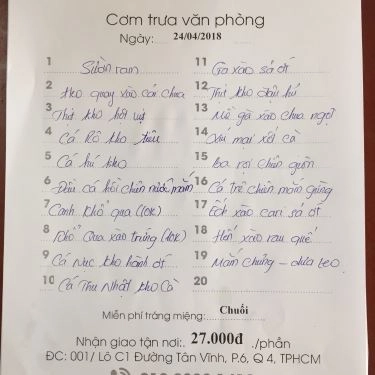 Cơm trưa văn phòng
Ngày: 24/04/2018
1 Sườn ram
2 Heo quay xào cải chua
3 Thịt kho hột vịt
4 Cá Rô kho tiêu
5 Cá hú kho
6 Đầu cá hồi chiên nước mắm
7 Canh khổ qua (10K)
8 Khổ Qua xào trứng (10K)
9 Cá Nục kho hành ớt
10 Cá Thu Nhật kho Cà
11 Gà xào sả ớt
12 Thịt kho đậu hũ
13 Mề gà xào chua ngọt
14 Xíu mại xốt cà
15 Ba rọi chiên giòn
16 Cá trê chiên mắm gừng
17 Ếch xào cari sả ớt
18 Hến xào rau quế
19 Mắm chưng - dưa leo
20
Miễn phí tráng miệng: Chuối
Nhận giao tận nơi: 27.000đ /phần
ĐC: 001/ Lô C1 Đường Tân Vĩnh, P.6, Q 4, TPHCM